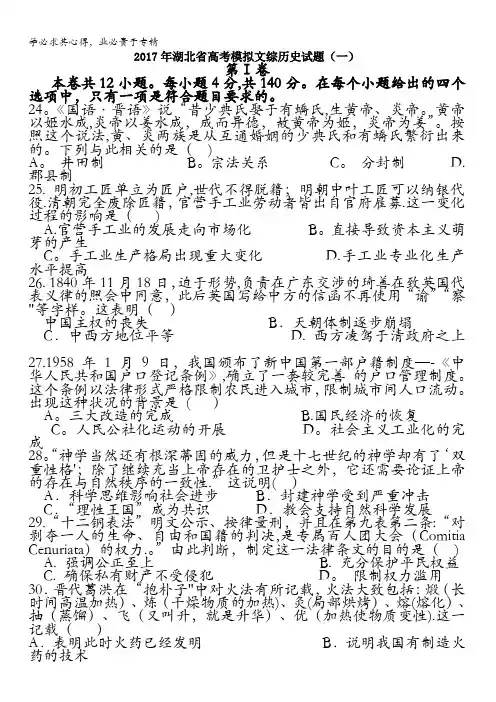 学必求其心得，业必贵于专精
2017年湖北省高考模拟文综历史试题（一）
第Ⅰ卷
本卷共12小题。每小题4分，共140分。在每个小题给出的四个
选项中，只有一项是符合题目要求的。
24。《国语·晋语》说“昔少典氏娶于有蟜氏,生黄帝、炎帝。黄帝
以姬水成,炎帝以姜水成，成而异德，故黄帝为姬，炎帝为姜”。按
照这个说法,黄、炎两族是从互通婚姻的少典氏和有蟜氏繁衍出来
的。下列与此相关的是（ ）
A。 井田制 B。宗法关系 C。 分封制 D.
郡县制
25. 明初工匠单立为匠户,世代不得脱籍；明朝中叶工匠可以纳银代
役.清朝完全废除匠籍，官营手工业劳动者皆出自官府雇募.这一变化
过程的影响是（ ）
A.官营手工业的发展走向市场化 B。直接导致资本主义萌
芽的产生
C。手工业生产格局出现重大变化 D.手工业专业化生产
水平提高
26.1840年11月18日,迫于形势,负责在广东交涉的琦善在致英国代
表义律的照会中同意，此后英国写给中方的信函不再使用“谕”“察
"等字样。这表明（ ）
中国主权的丧失 B．天朝体制逐步崩塌
C．中西方地位平等 D. 西方凌驾于清政府之上
27.1958年1月9日，我国颁布了新中国第一部户籍制度—-《中
华人民共和国户口登记条例》,确立了一套较完善 的户口管理制度。
这个条例以法律形式严格限制农民进入城市,限制城市间人口流动。
出现这种状况的背景是（ ）
A。三大改造的完成 B.国民经济的恢复
C。人民公社化运动的开展 D。社会主义工业化的完
成
28。“神学当然还有根深蒂固的威力,但是十七世纪的神学却有了‘双
重性格'；除了继续充当上帝存在的卫护士之外，它还需要论证上帝
的存在与自然秩序的一致性.”这说明( ）
A．科学思维影响社会进步 B．封建神学受到严重冲击
C．“理性王国”成为共识 D．教会支持自然科学发展
29.“十二铜表法”明文公示、按律量刑，并且在第九表第二条:“对
剥夺一人的生命、自由和国籍的判决,是专属百人团大会（Comitia
Cenuriata）的权力.。”由此判断，制定这一法律条文的目的是（ ）
A. 强调公正至上 B. 充分保护平民权益
C. 确保私有财产不受侵犯 D。 限制权力滥用
30．晋代葛洪在“抱朴子"中对火法有所记载，火法大致包括：煅（长
时间高温加热）、炼（干燥物质的加热)、灸(局部烘烤）、熔(熔化）、
抽（蒸馏）、飞（又叫升，就是升华）、优（加热使物质变性).这一
记载（ ）
A．表明此时火药已经发明 B．说明我国有制造火
药的技术